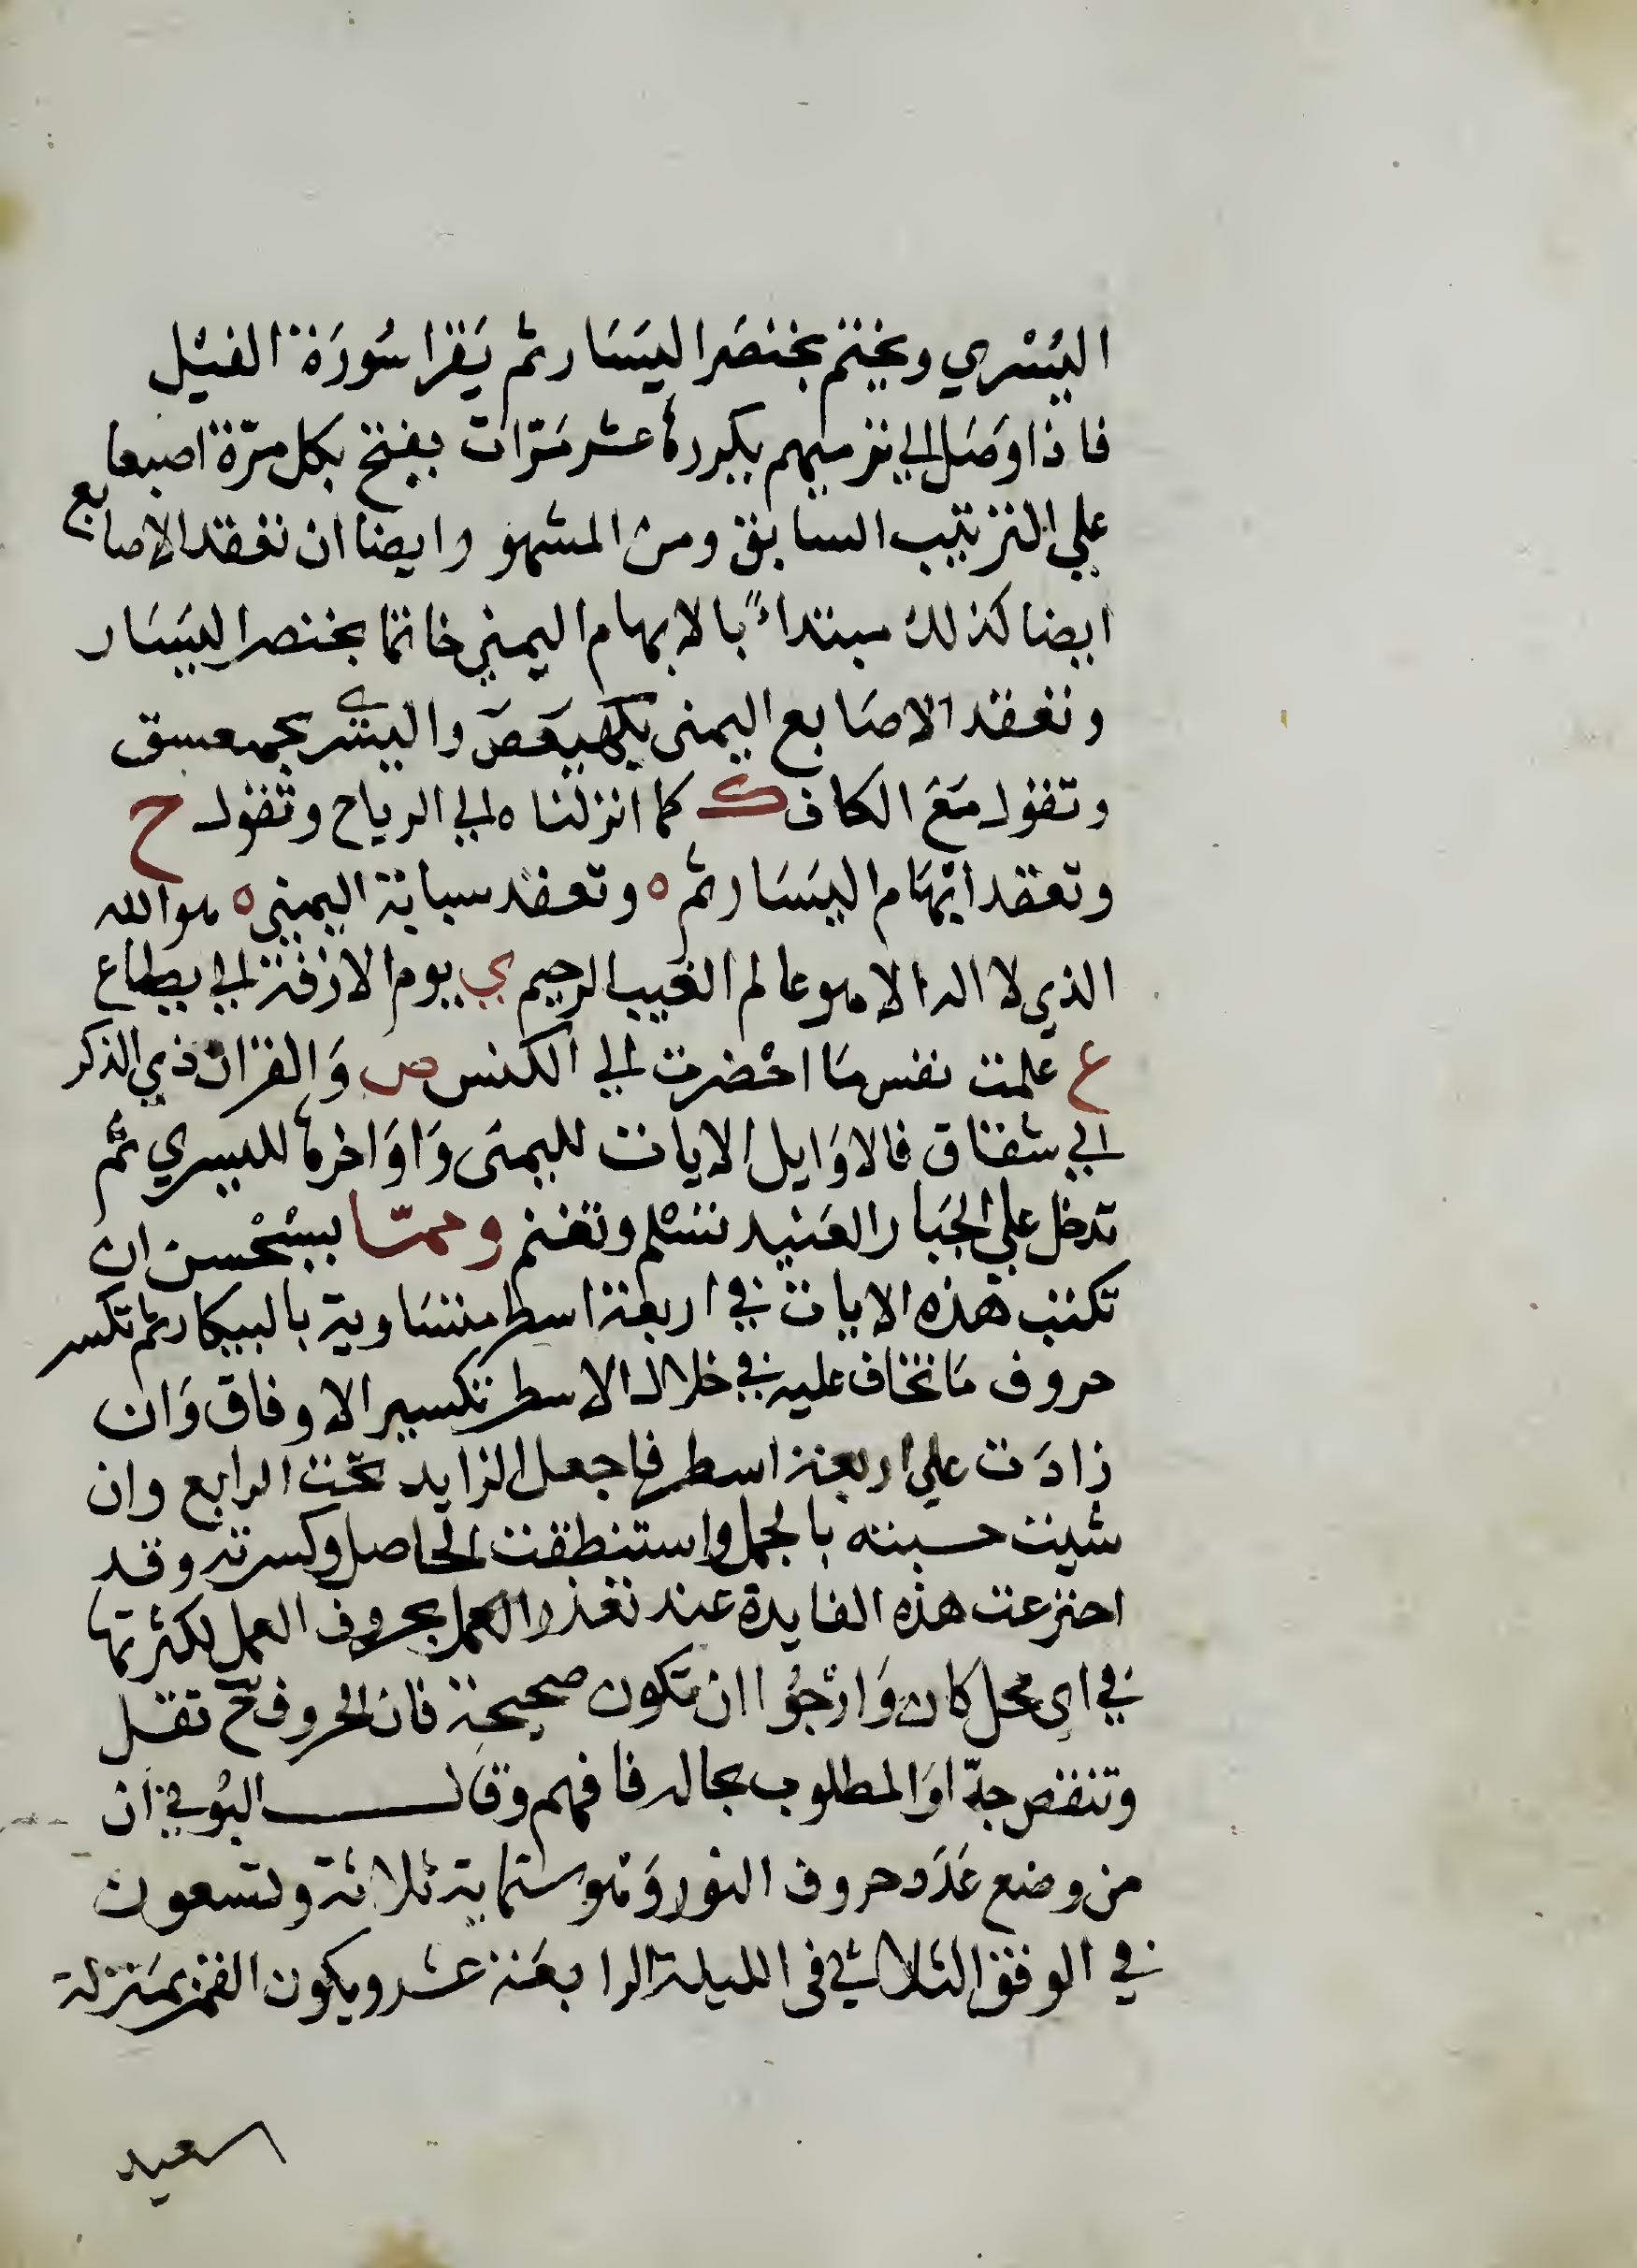 اليُسْري ويختم بخنصَر اليسَار ثم يَقرا سُورَة الفيْل
فاذا وَصَل الي ترميهم يكررهُ عشر مَرّات يفتح بكل مرّة اصبعا
علي الترتيب السابق ومن المشهو وايضا ان تعقد الاصابع
ايضا كذلك مبتداءً بالابهام اليمني خاتما بخنصر اليسَار
وتعقد الاصَابع اليمنى بكهيعَصَ واليسري بحمعسق
وتقول مَعَ الكاف ك كما انزلناه الي الرياح وتقول ح
وتعقد ابْهَام اليسَار ثم ه وتعقد سبابة اليمني ه هو الله
الذي لا اله الا هو عالم الغيب الرحيم ي يوم الازفة الي يطاع
ع علمت نفس مَا احْضرت الي الكنس ص وَالقران ذي الذكر
الي شقاق فالاوَايل الايات لليمنَى وَاوَاخرها لليسري ثم
تدخل علي الجبار العَنيد تسْلم وتغنم وممّا يسْتحْسن ان
تكتب هَذه الايات في اربعة اسطر متسَاوية بالبيكار ثم تكسر
حروف مَا تخاف عليه في خلال الاسطر تكسير الاوفاق وَان
زادَت علي اربعة اسطر فاجعل الزايد تحت الرابع وان
شيت حسبته بالجمل واستنطقت الحاصل وكسرته وقد
اخترعت هذه الفايدة عند تعذر العمل بحروف العمل لكثرتها
في اى محل كان وَارْجُوا ان تكون صحيحة فان الحروف ح تقل
وتنقص جدّا وَالمطلوب بحاله فافهم وقال البُوني ان
من وضع عَدَد حروف النور وَهو ستماية ثلاثة وتسعون
في الوفق الثلاثي فى الليلة الرابعَة عشر ويكون القمر بمنزلة
سعيد